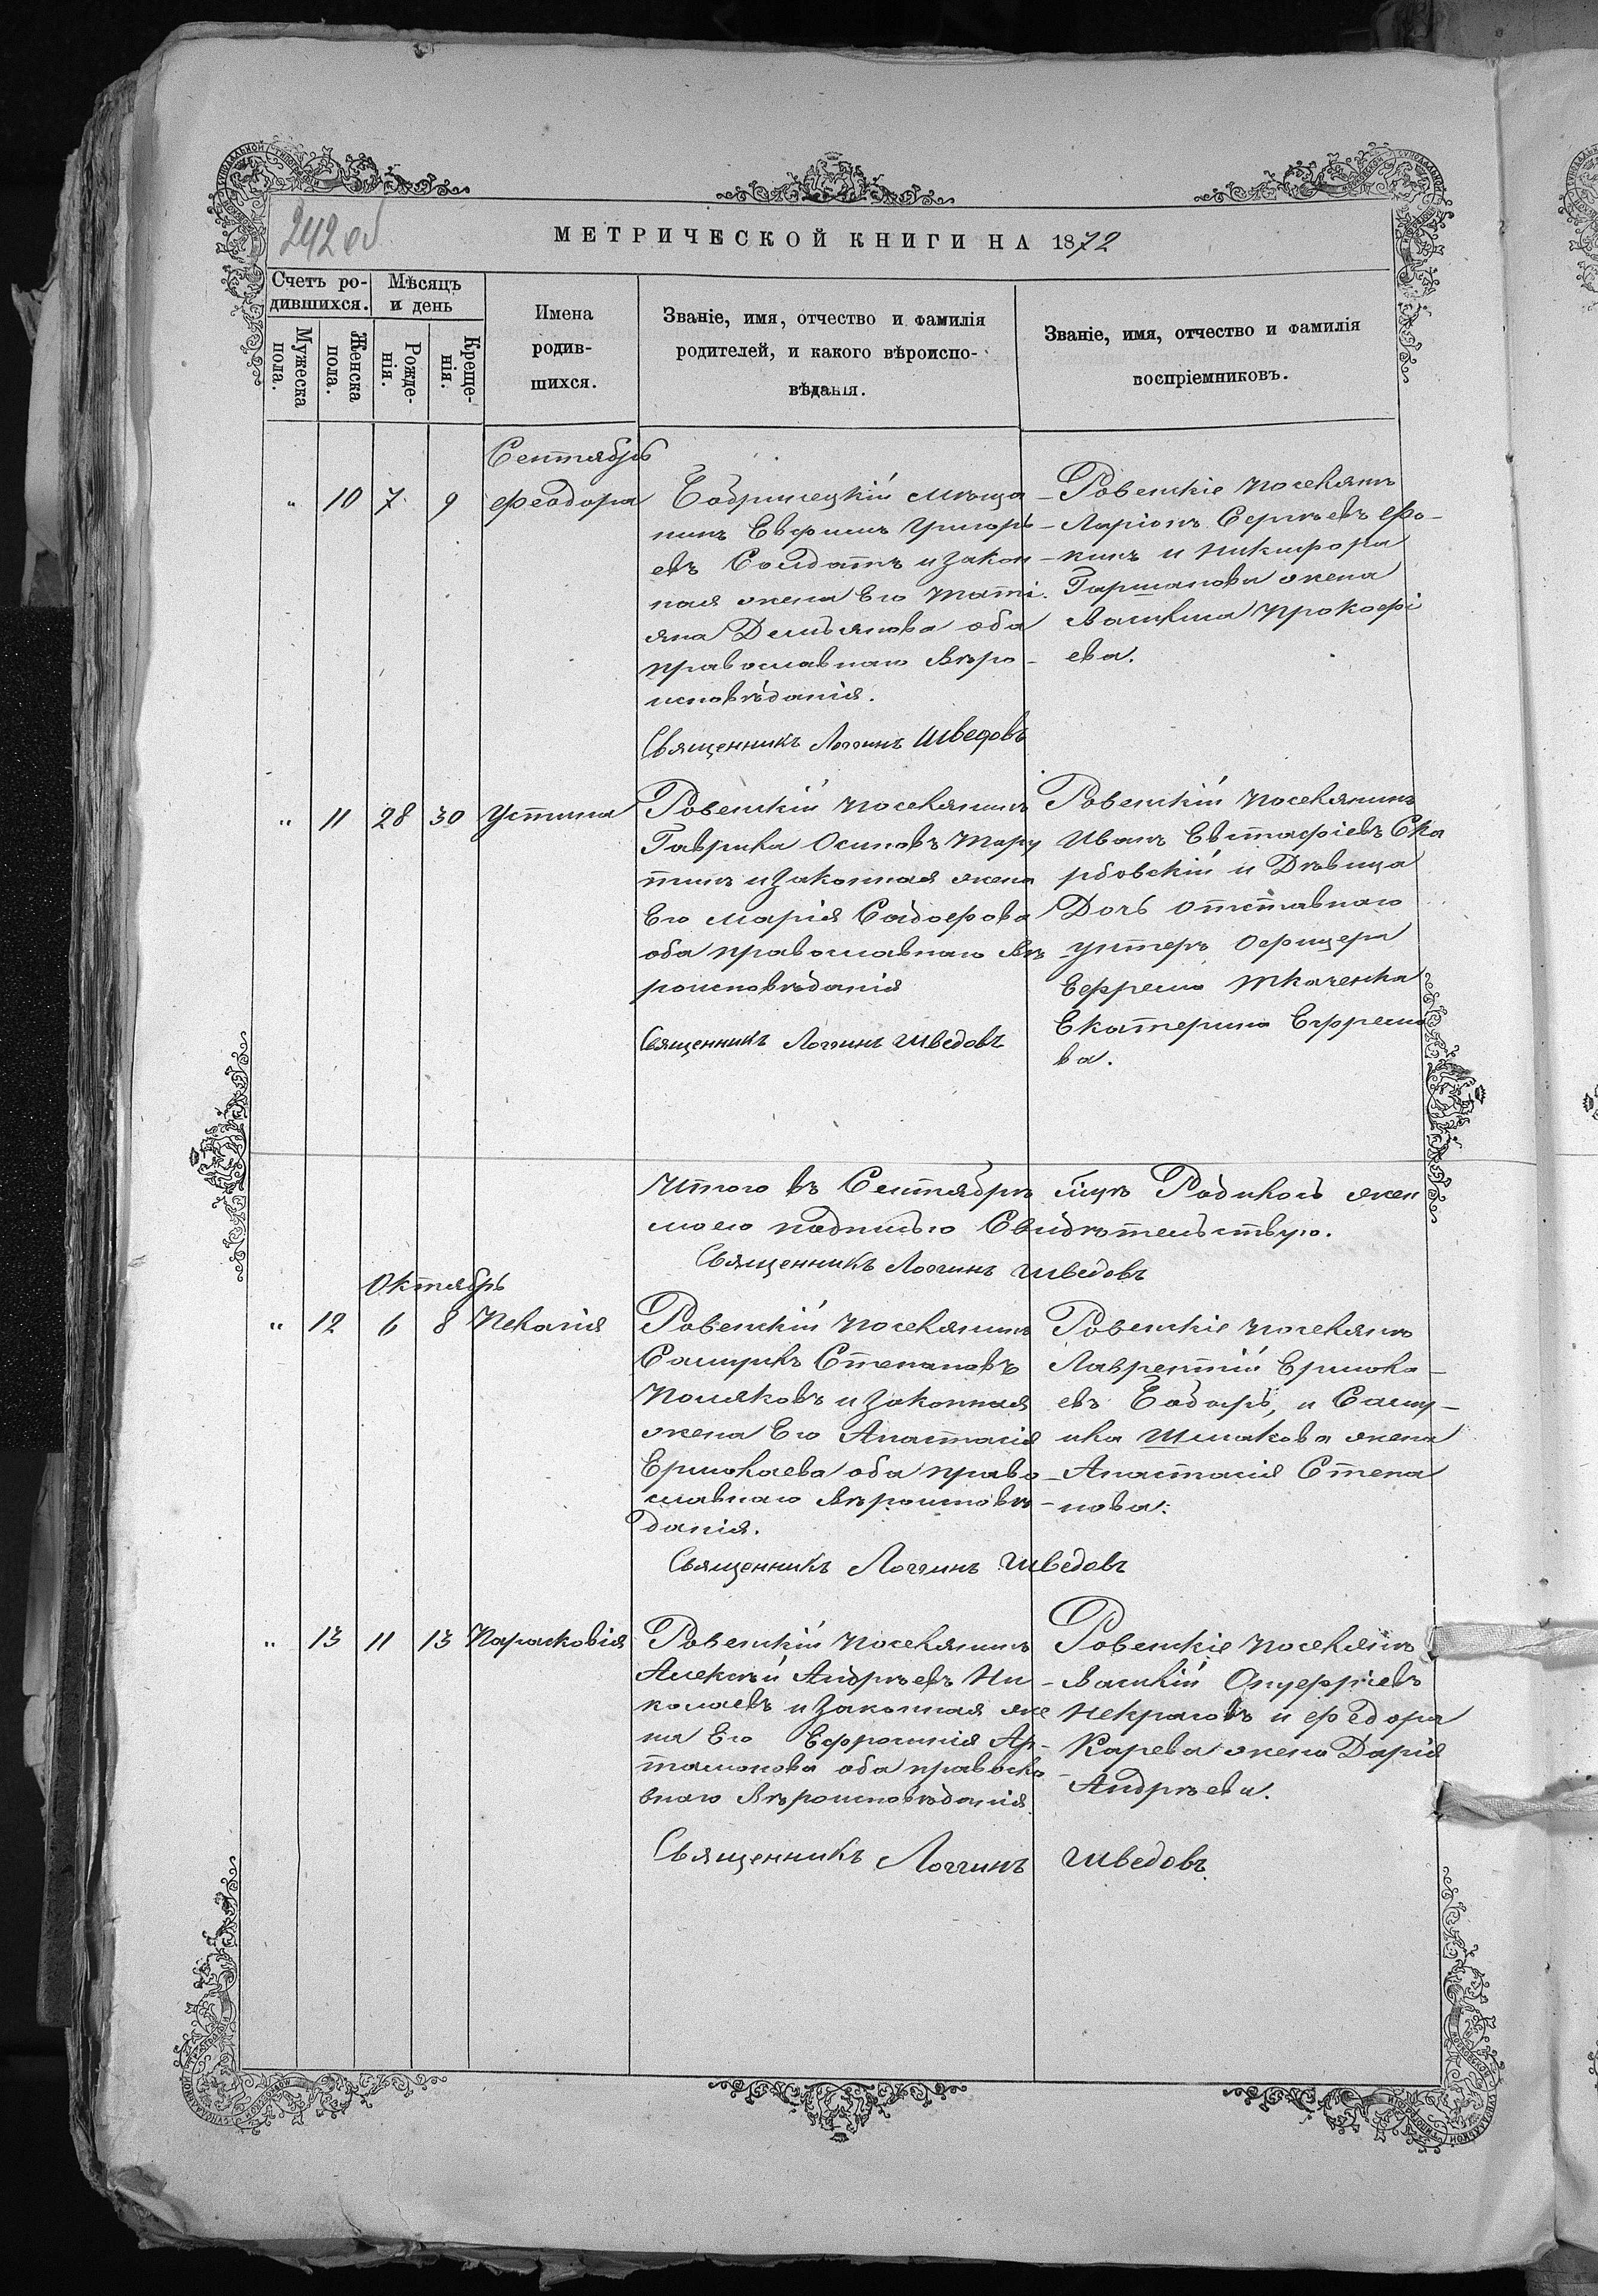 242 об
МЕТРИЧЕСКОЙ КНИГИ НА 1872
Счетъ ро-
дившихся.
Мѣсяцъ
и день
Мужеска
пола.
Женска
пола.
Рожде-
нія.
Креще-
нія.
Имена
родив-
шихся.
Званіе, имя, отчество и фамилія
родителей, и какого вѣроиспо-
вѣданія.
Званіе, имя, отчество и фамилія
воспріемниковъ.
Сентябрь
" 10 7 9 Феодора
мѣща
нинъ Григорь
евъ Солдатъ и закон
ная жена Его Таті
яна Демьянова оба
православнаго вѣро-
исповѣданія.
Священникъ Логгинъ Шведовъ
Ровенскіе поселяне
Ларіонъ Сергѣевъ Фо-
кинъ и Никифора
жена
Василиса Прокофі
ева.
" 11 28 30 Устина
Ровенскій поселянинъ
Гаврила Осиповъ
и законная жена
Его Марія
оба православнаго вѣ
роисповѣданія
Священникъ Логгинъ Шведовъ
Ровенскій поселянинъ
Иванъ Евстафіевъ Ска
рбовскій и Дѣвица
Дочь отставнаго
унтеръ офицера
Ефрема Ткаченка
Екатерина Ефремо
ва.
Итого въ Сентябрѣ Родилось жен
моею подписью Свидѣтельствую.
Священникъ Логгинъ Шведовъ
Октябрь
" 12 6 8 Пелагія
Ровенскій поселянинъ
Самуилъ Степановъ
Поляковъ и законная
жена Его Анастасія
Ермолаева оба право
славнаго вѣроисповѣ
данія.
Священникъ Логгинъ Шведовъ
Ровенскіе поселяне
Лаврентій Ермола-
евъ и Саму-
ила Шмакова жена
Анастасія Степа
нова.
" 13 11 13 Парасковія
Ровенскій поселянинъ
Алексѣй Андрѣевъ Ни-
колаевъ и законная же
на Его Ефросинія Ар-
тамонова оба правосла
внаго вѣроисповѣданія.
Священникъ Логгинъ Шведовъ
Ровенскіе поселяне
Василій Онуфріевъ
Некрасовъ и Федора
Карева жена Дарія
Андрѣева.